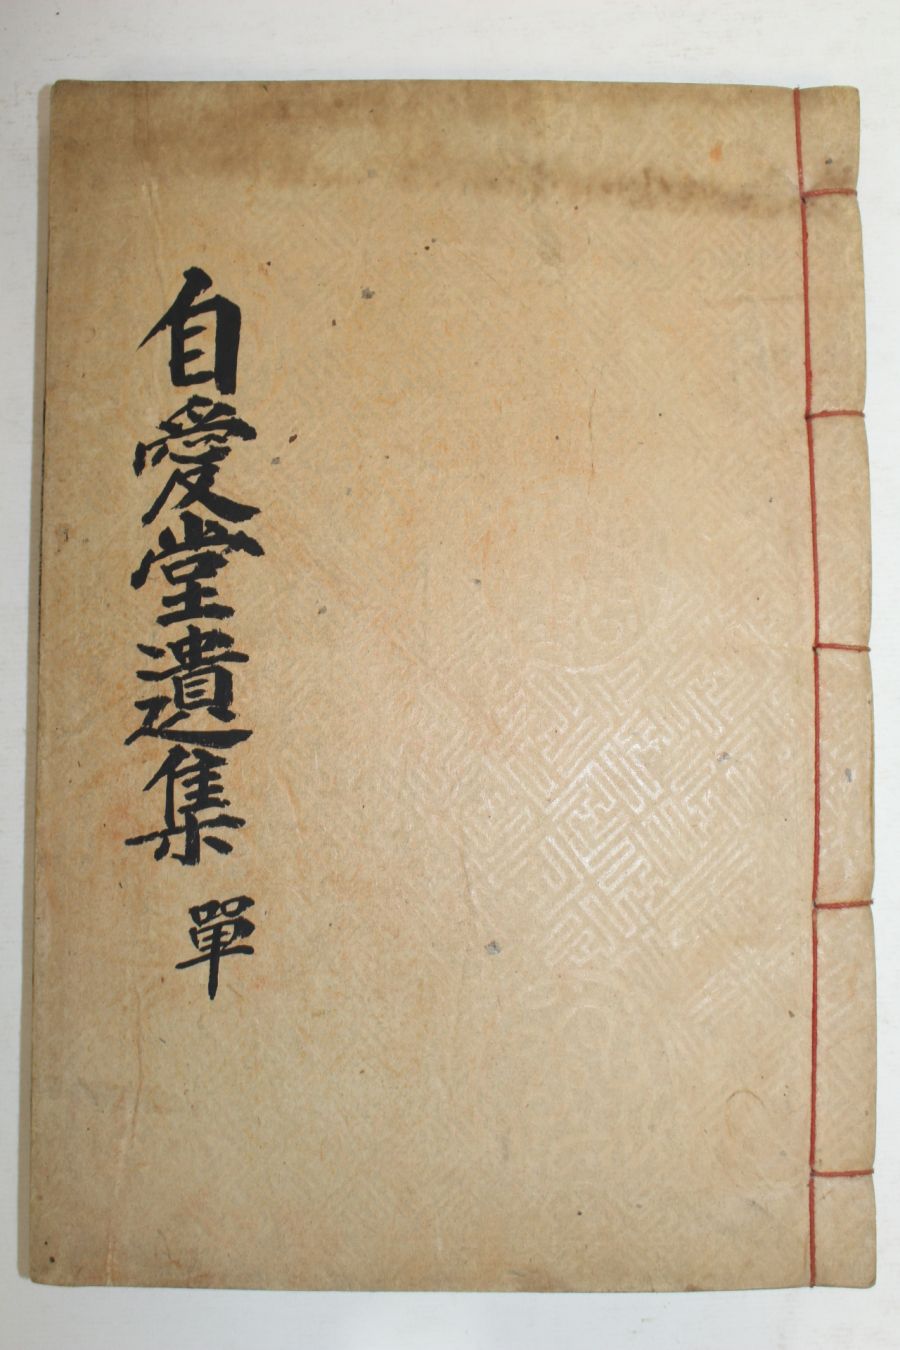 自愛堂遺集 單